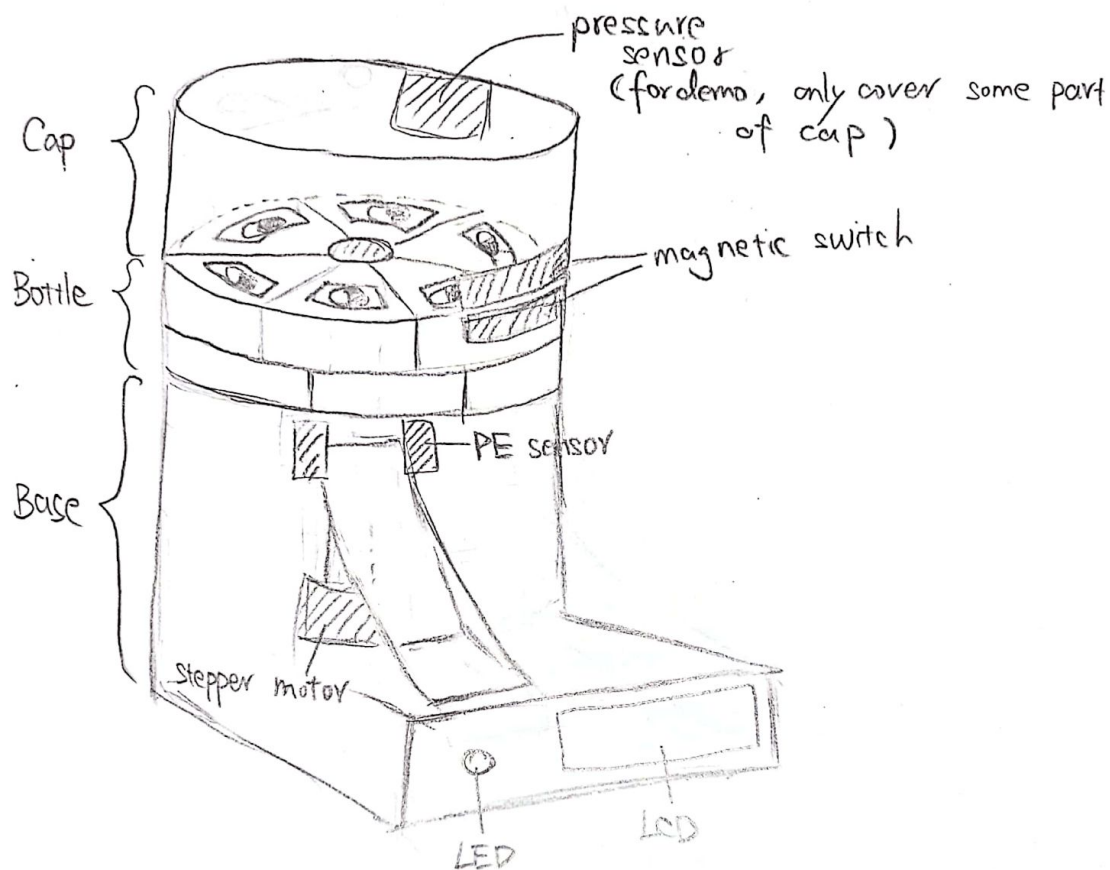 pressure
sensor
(for demo, only cover some part
of cap)
Cap
magnetic switch
Bottle
PE sensor
Base
stepper motor
LED
LCD